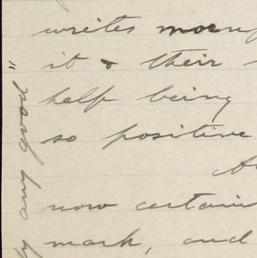 writes
it & their
help being
so positive
now certain
mark, and
any good"